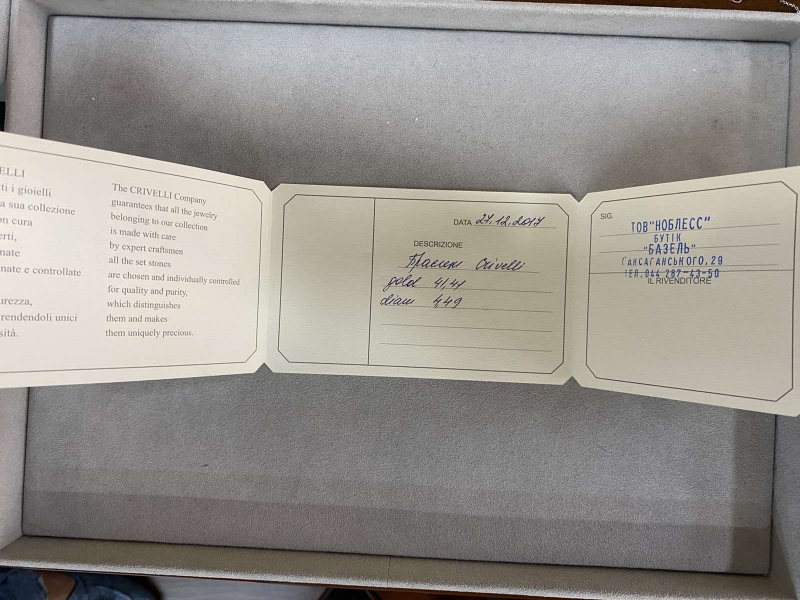 ELLI
ti i gioielli
a sua collezione
on cura
erti,
nate
nate e controllate
urezza,
rendendoli unici
sità.
The CRIVELLI Company
guarantees that all the jewelry
belonging to our collection
is made with care
by expert craftsmen
all the set stones
are chosen and individually controlled
for quality and purity,
which distinguishes
them and makes
them uniquely precious.
DATA 27.12.2017
DESCRIZIONE
Браслет Crivelli
gold 41,41
diam 449
SIG.
ТОВ"НОБЛЕСС"
БУТІК
"БАЗЕЛЬ"
САКСАГАНСЬКОГО, 29
ТЕЛ. 044 287-43-50
IL RIVENDITORE